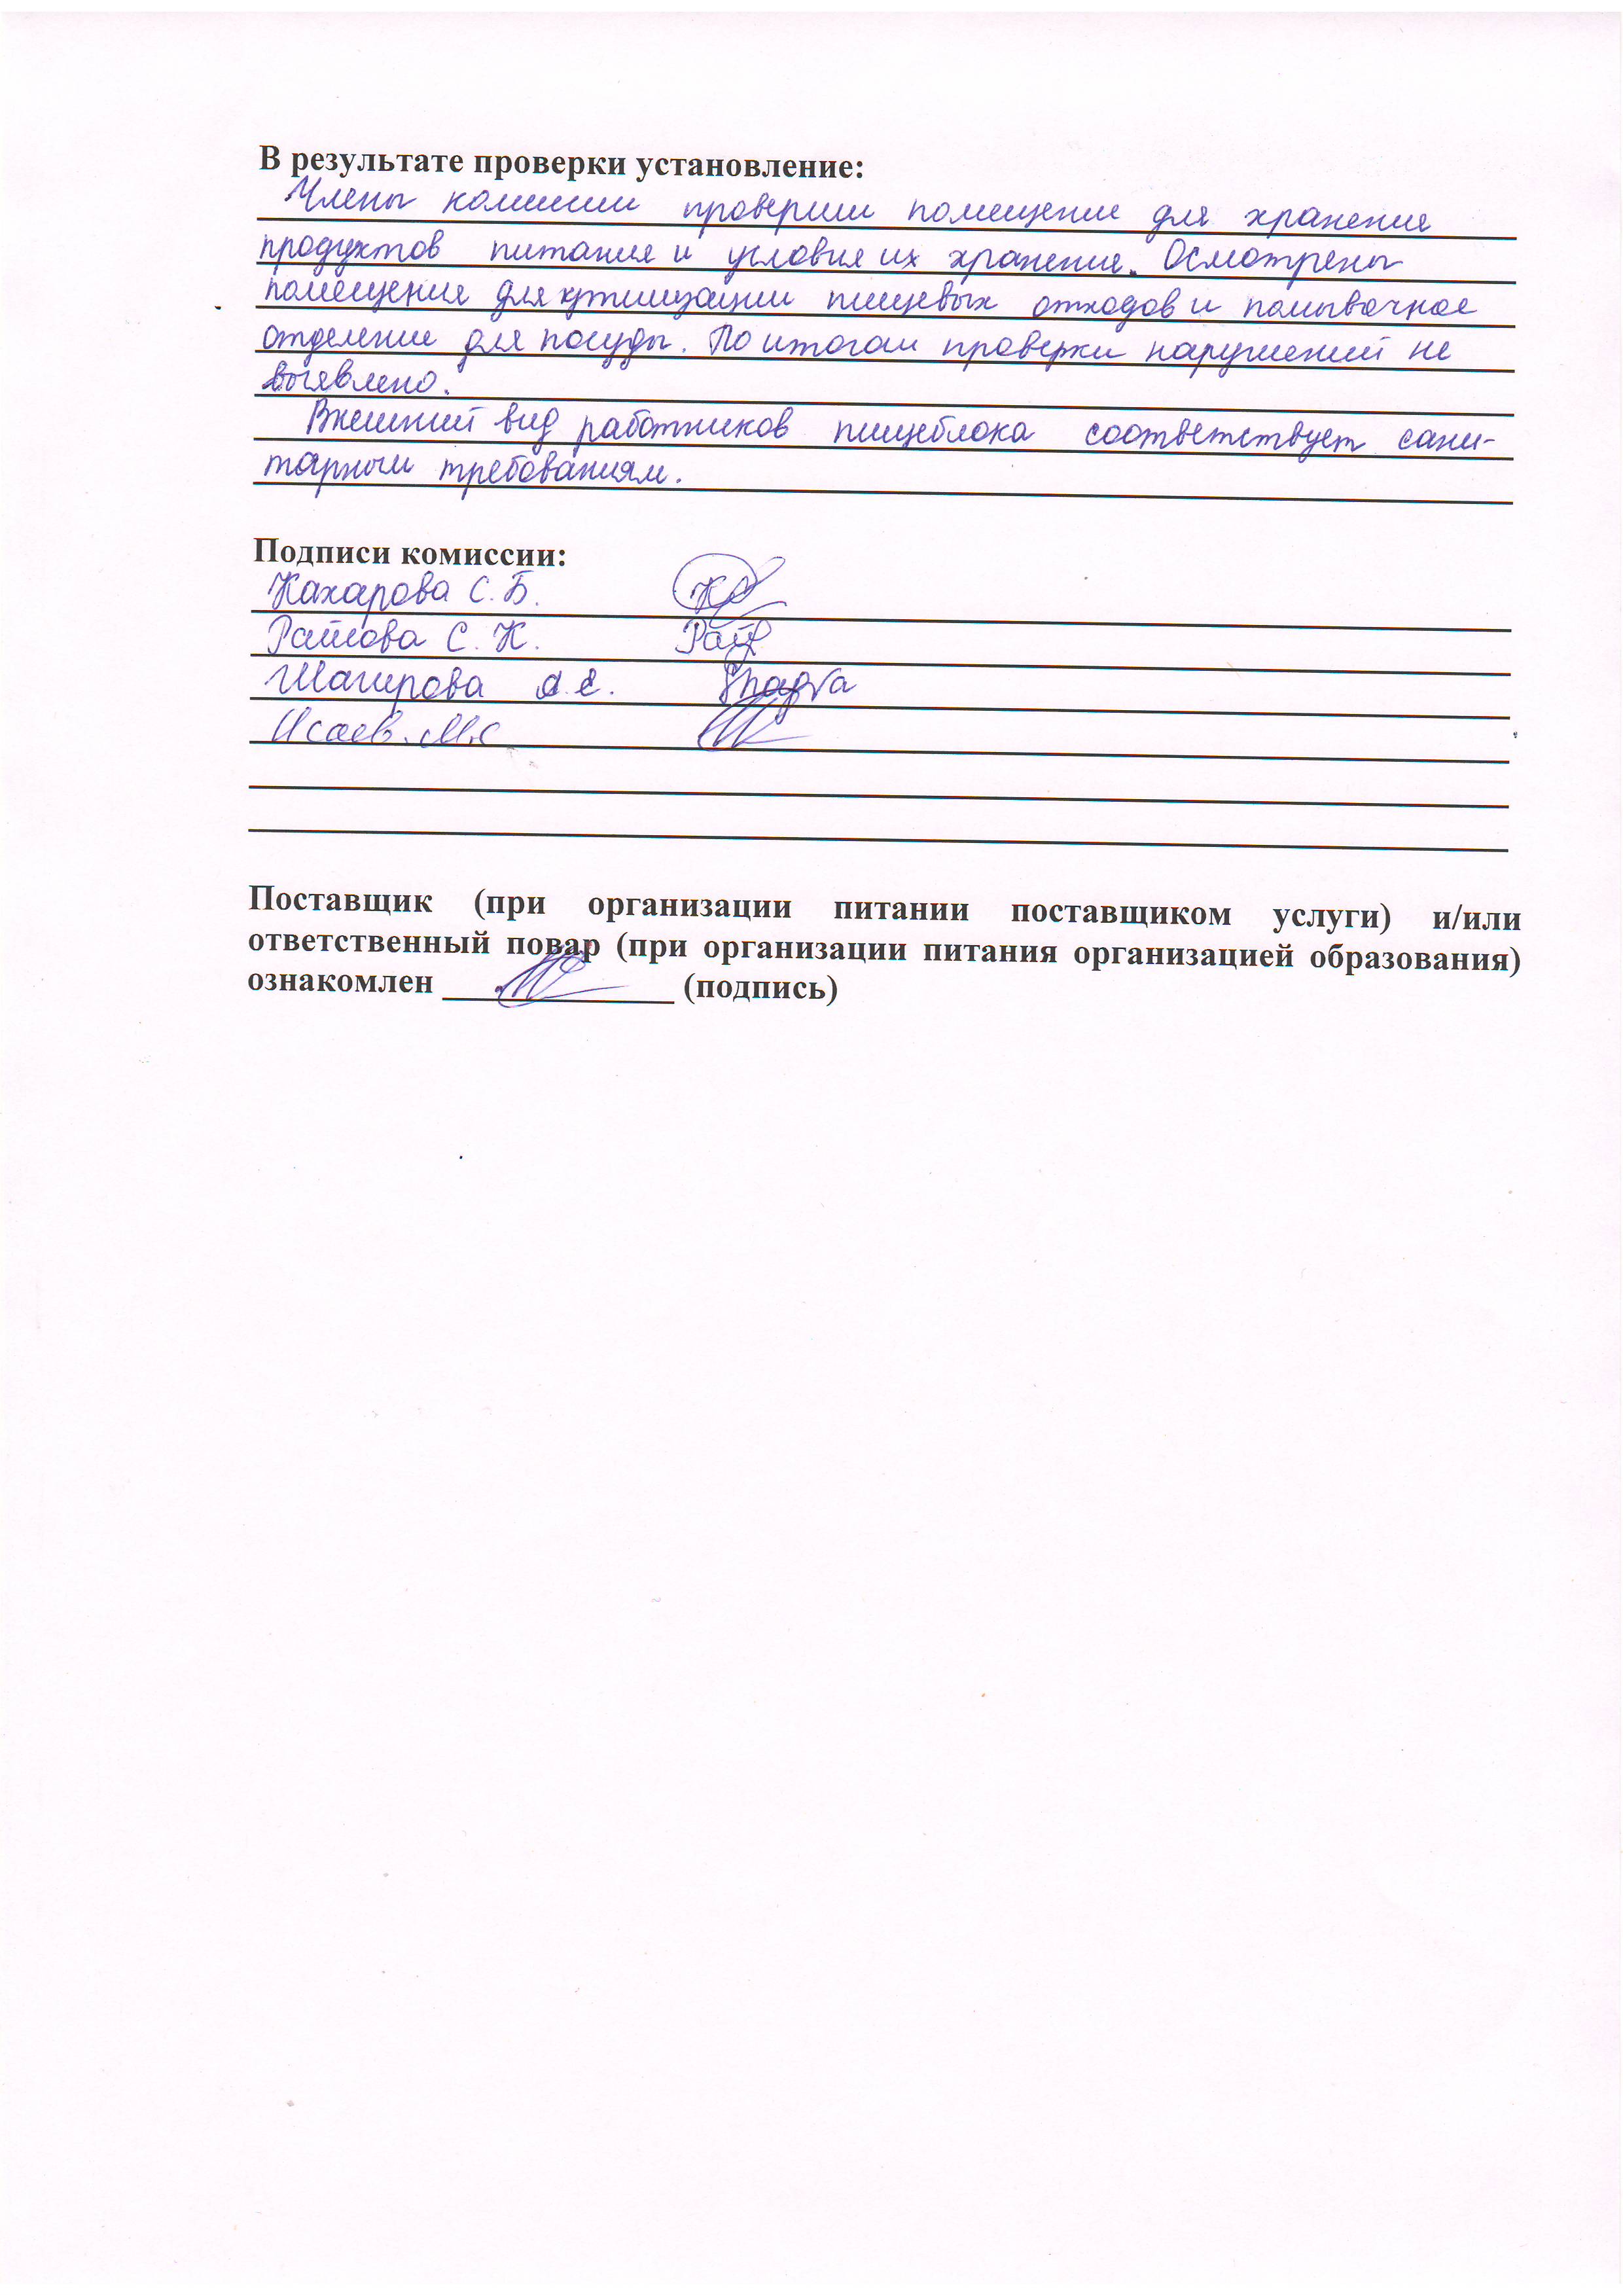 В результате проверки установление:
Члены комиссии проверили помещение для хранение
продуктов питания и условия их хранение. Осмотрены
помещения для утилизации пищевых отходов и помывочное
отделение для посуды. По итогам проверки нарушений не
выявлено.
Внешний вид работников пищеблока соответствует сани-
тарным требованиям.
Подписи комиссии:
Кахарова С.Б.
Раимова С. К.
Шагирова А.Е.
Исаев. М.С
Поставщик (при организации питании поставщиком услуги) и/или
ответственный повар (при организации питания организацией образования)
ознакомлен (подпись)